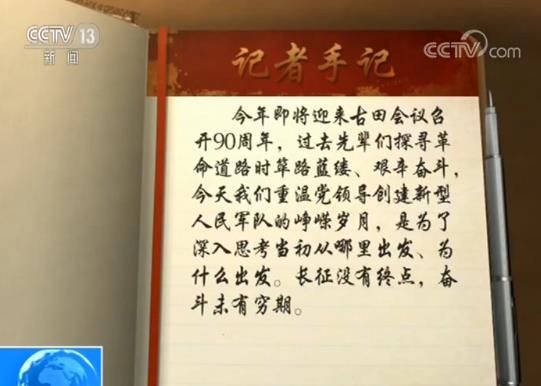 CCTV 13
新闻
CCTV.com
记者手记
今年即将迎来古田会议召
开90周年，过去先辈们探寻革
命道路时筚路蓝缕、艰辛奋斗，
今天我们重温党领导创建新型
人民军队的峥嵘岁月，是为了
深入思考当初从哪里出发、为
什么出发。长征没有终点，奋
斗未有穷期。